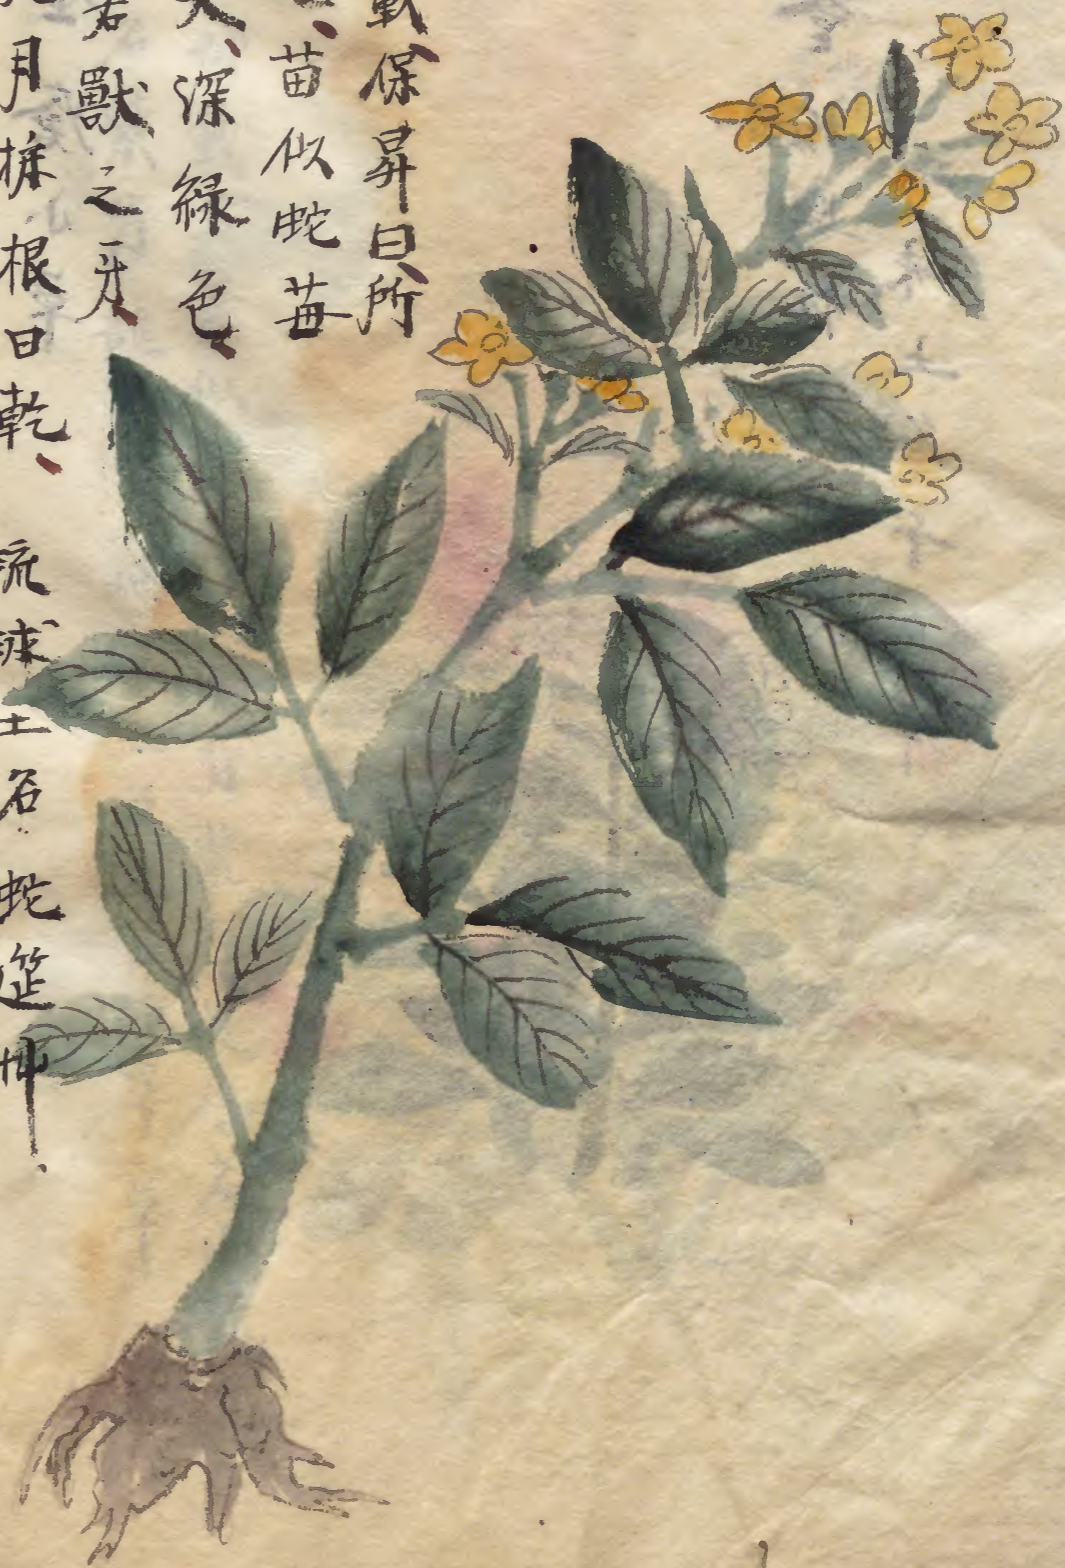 載保昇曰、所
苗似蛇莓
大、深綠色、
若獸之牙、
月採根日乾、 流球土名蛇筵艸